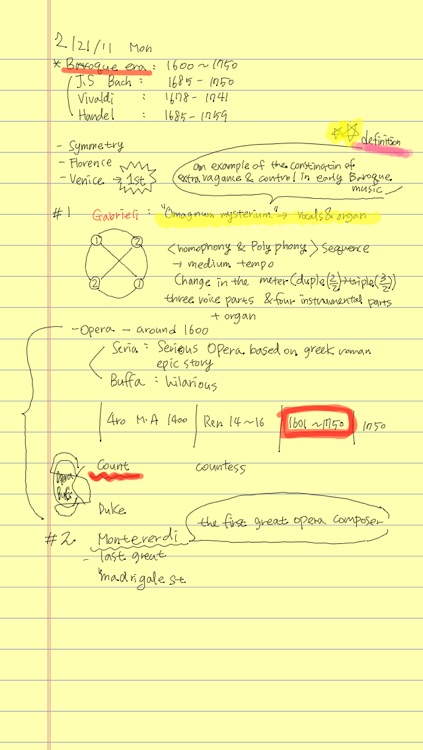 2/21/11 Mon
* Baroque era : 1600 ~ 1750
J.S Bach : 1685 - 1750
Vivaldi : 1678 - 1741
Handel : 1685 - 1759
definition
- Symmetry
- Florence
- Venice → 1st
an example of the constingtin of
extravagance & control in early Baroque
music
#1 Gabrieli : "Omagnum mysterium" → vocals & organ
1 2
2 1
<homophony & Polyphony> Sequence
→ medium tempo
Change in the meter (duple(2/2) → triple(3/2)
three voice parts & four instrumental parts
+ organ
- Opera - around 1600
Seria : Serious Opera based on greek roman
epic story
Buffa : hilarious
450 M.A 1400 | Ren 14~16 | 1601 ~ 1750 | 1750
Opera
Buffa
Count countess
Duke
the first great opera composer
#2 Monteverdi
- last great
madrigalest